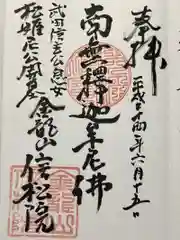 奉拝
平成二十四年六月十五日
南無釋迦牟尼佛
武田信玄公息女
松姫尼公開基
金龍山信松院